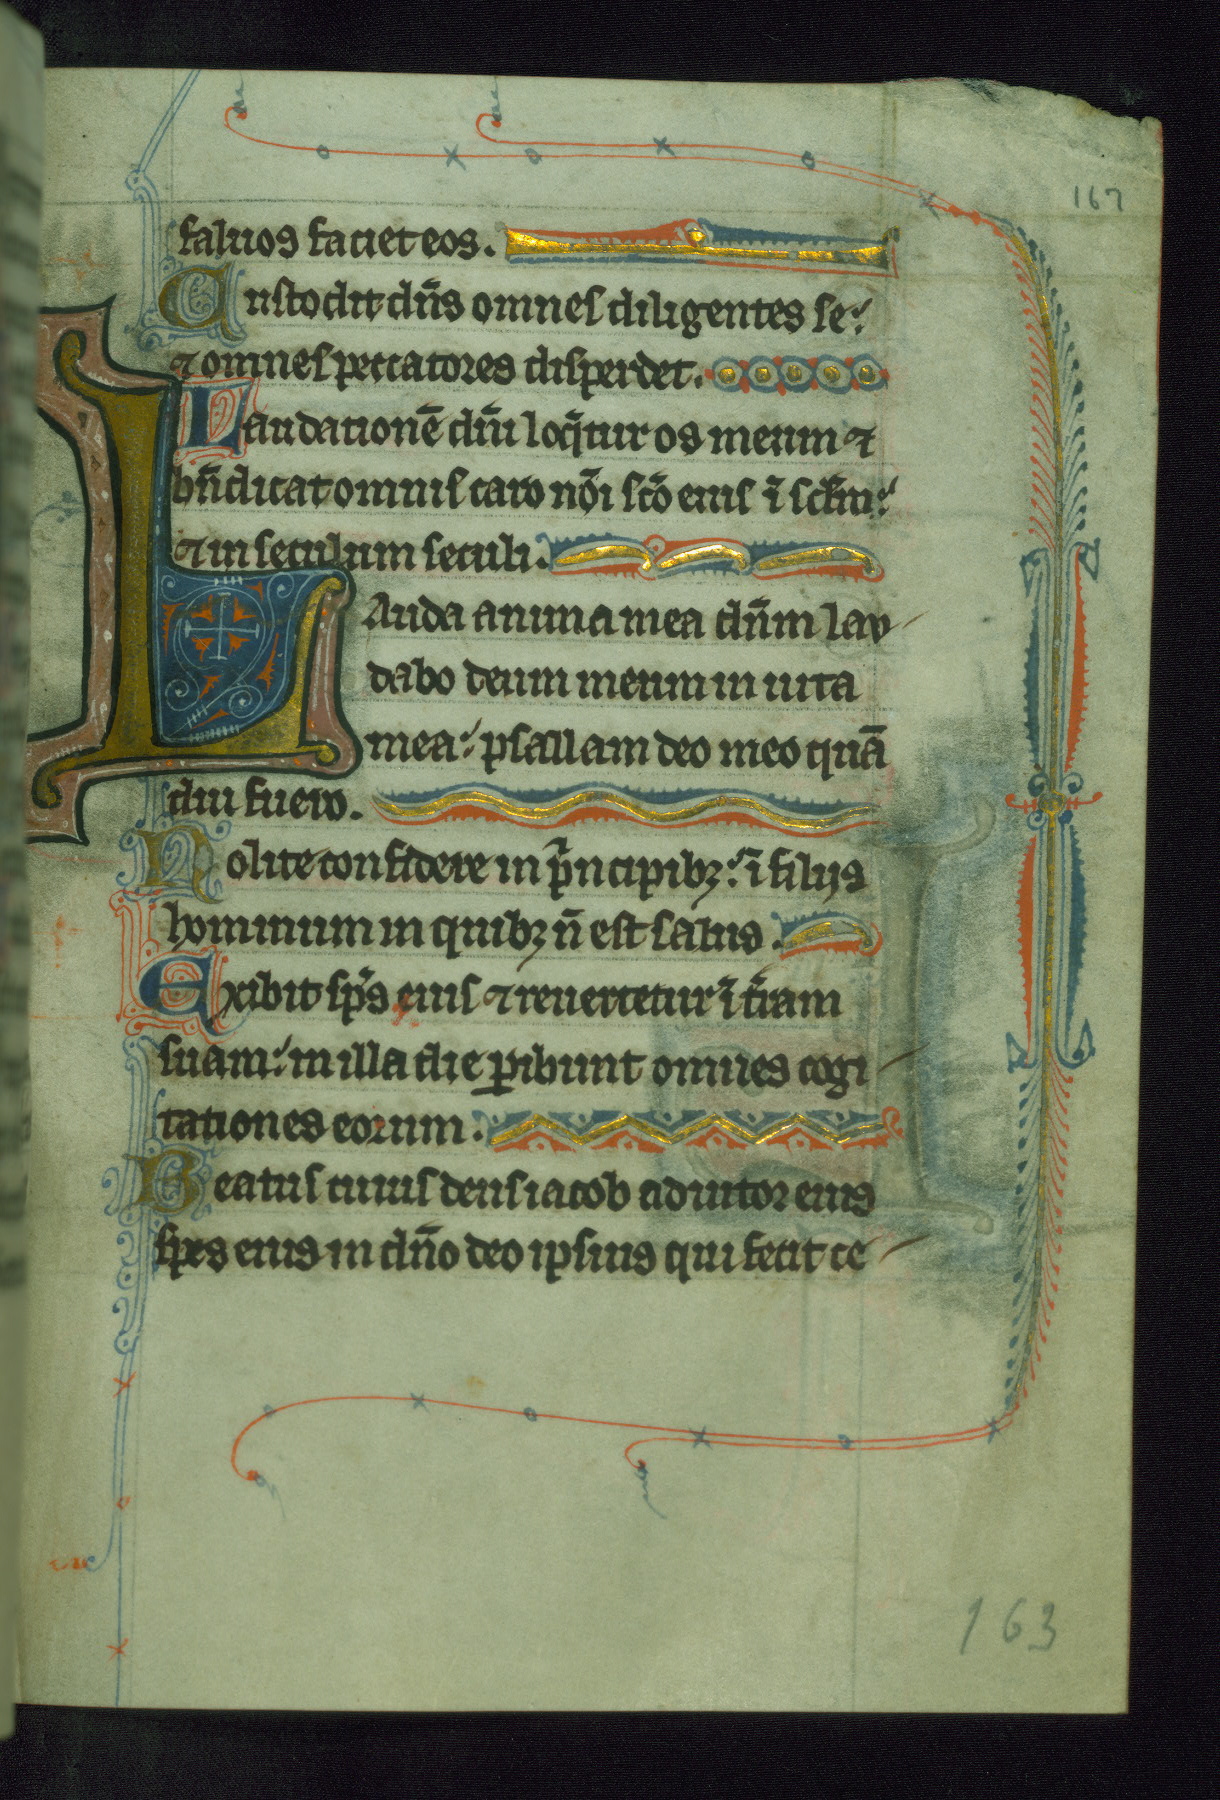 167
saluos faciet eos.
Custodit dn̄s omnes diligentes se:
⁊ omnes peccatores disperdet.
Laudationē dn̄i loq̄tur os meum ⁊
bn̄dicat omnis caro nōi sc̄o eius ī sc̄lm:
⁊ in seculum seculi.
Lauda anima mea dn̄m lau
dabo deum meum in uita
mea: psallam deo meo quā
diu fuero.
Nolite confidere in p̄ncipibꝫ: ī filijs
hominum in quibꝫ n̄ est salus.
Exibit sp̄s eius ⁊ reuertetur ī t̄ram
suam: in illa die ꝑibunt omnes cogi
tationes eorum.
Beatus cuius deus iacob adiutor eius
spes eius in dn̄o deo ipsius qui fecit ce
163